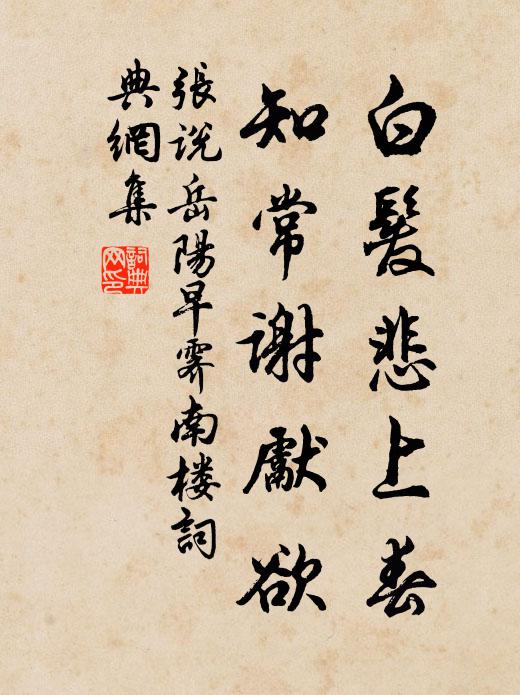 白髮悲上春
知常謝獻欲
張说岳陽早霽南楼詞
典網集
詞典
网印